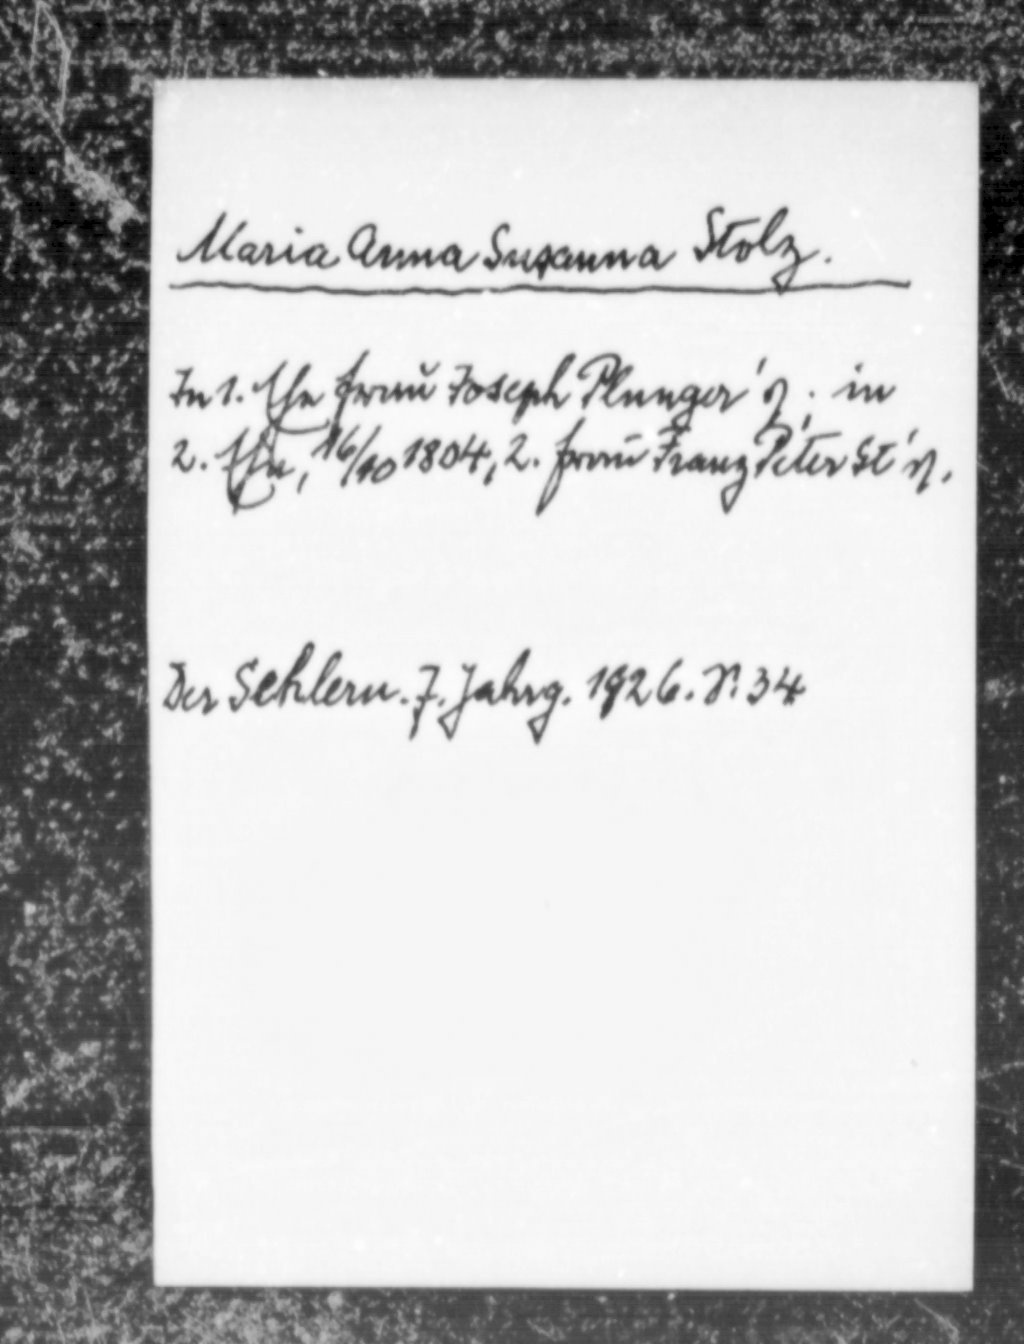 Maria Anna Susanna Stolz.
In 1. Ehe Frau Joseph Plunger's; in
2. Ehe, 16/10 1804, 2. Frau Franz Peter St's.
Der Schlern. 7. Jahrg. 1926. S. 34